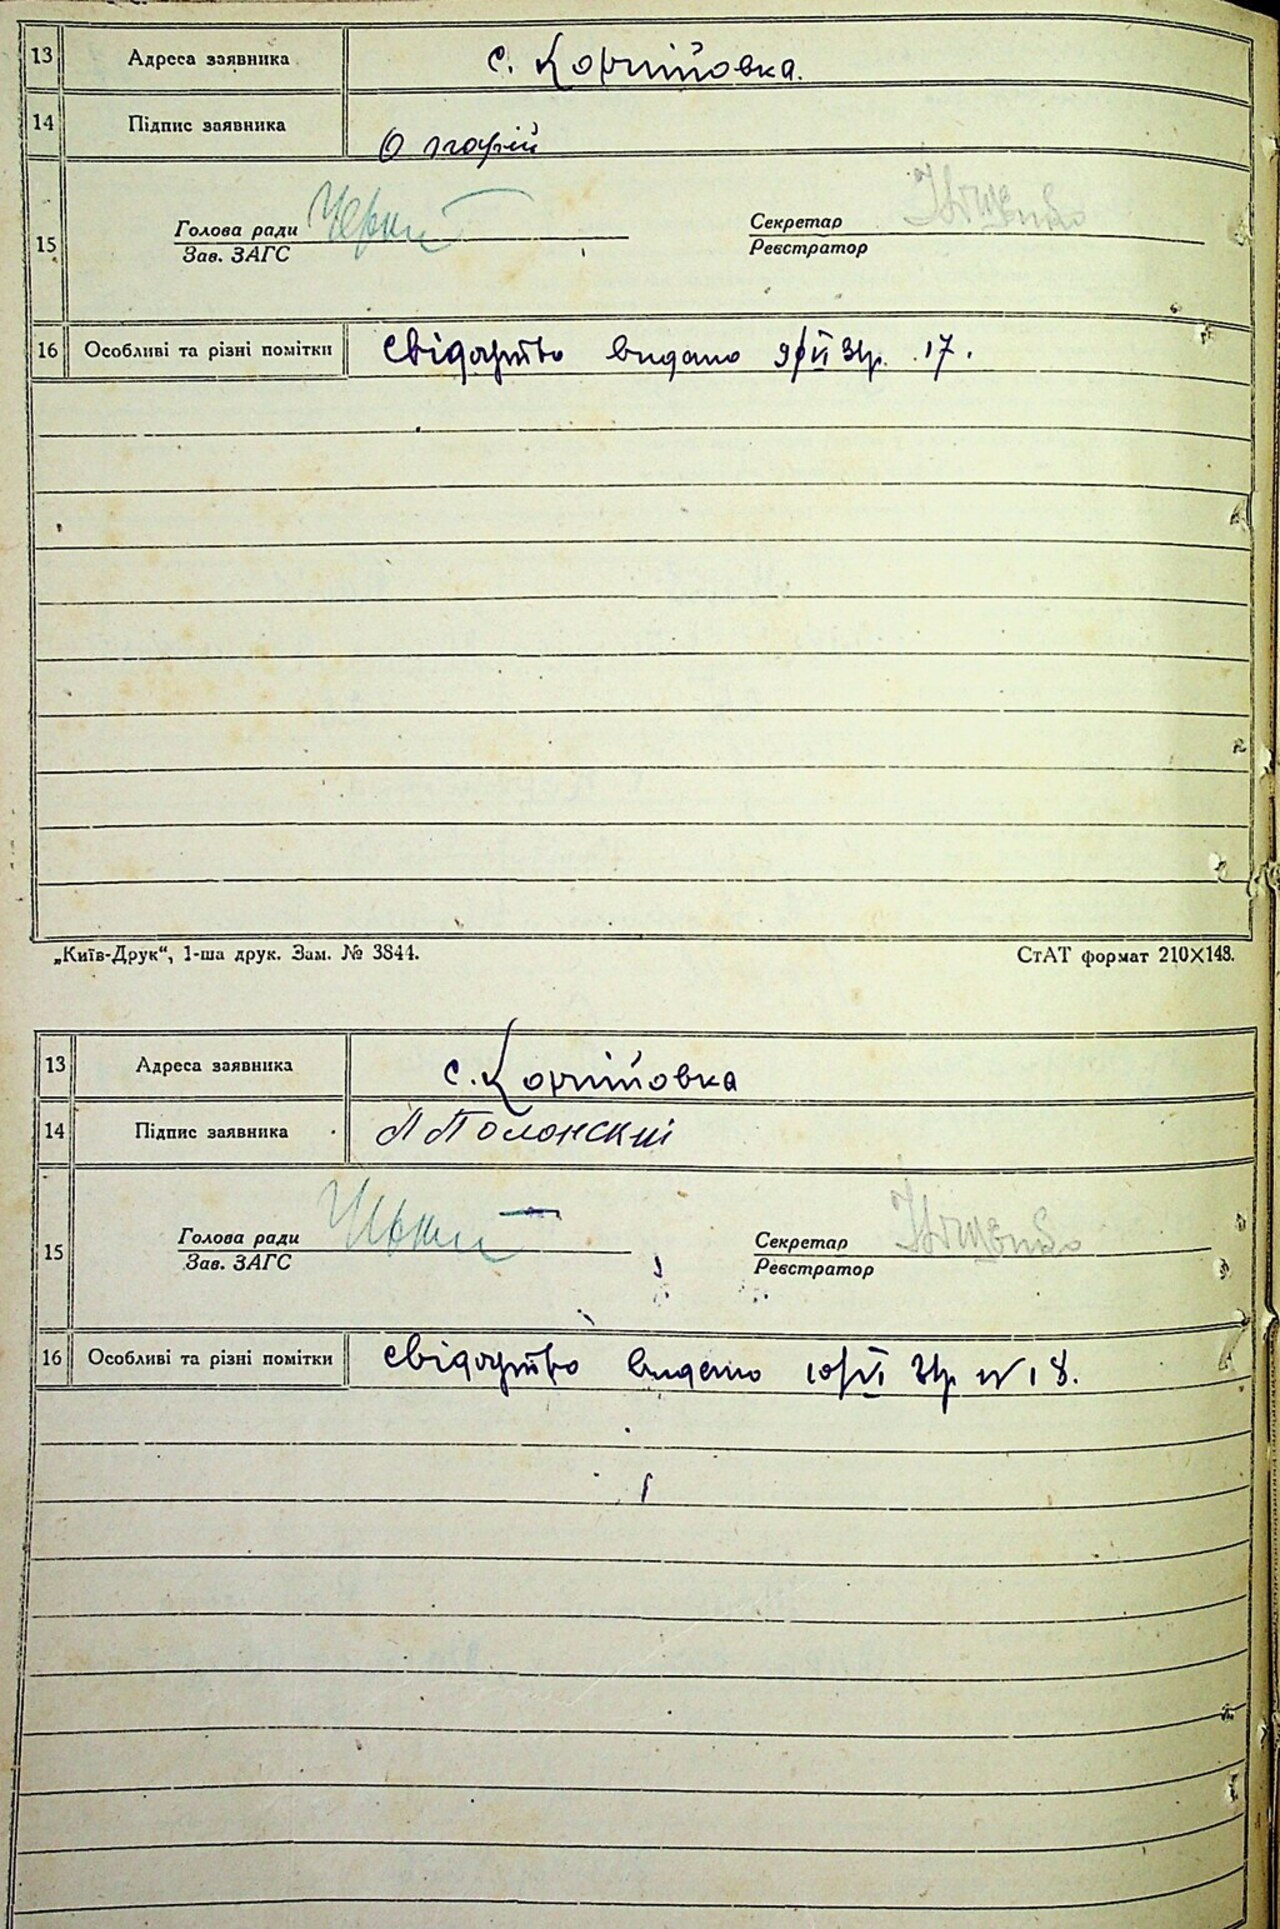 13 Адреса заявника с. Корнітовка.
14 Підпис заявника
15 Голова ради Секретар
Зав. ЗАГС Реєстратор
16 Особливі та різні помітки свідоцтво видано 9/VI 3 17.
„Київ-Друк“, 1-ша друк. Зам. № 3844. СтАТ формат 210X148.
13 Адреса заявника с. Корнітовка
14 Підпис заявника Полонский
15 Голова ради Секретар
Зав. ЗАГС Реєстратор
16 Особливі та різні помітки свідоцтво видано 10/VI № 18.